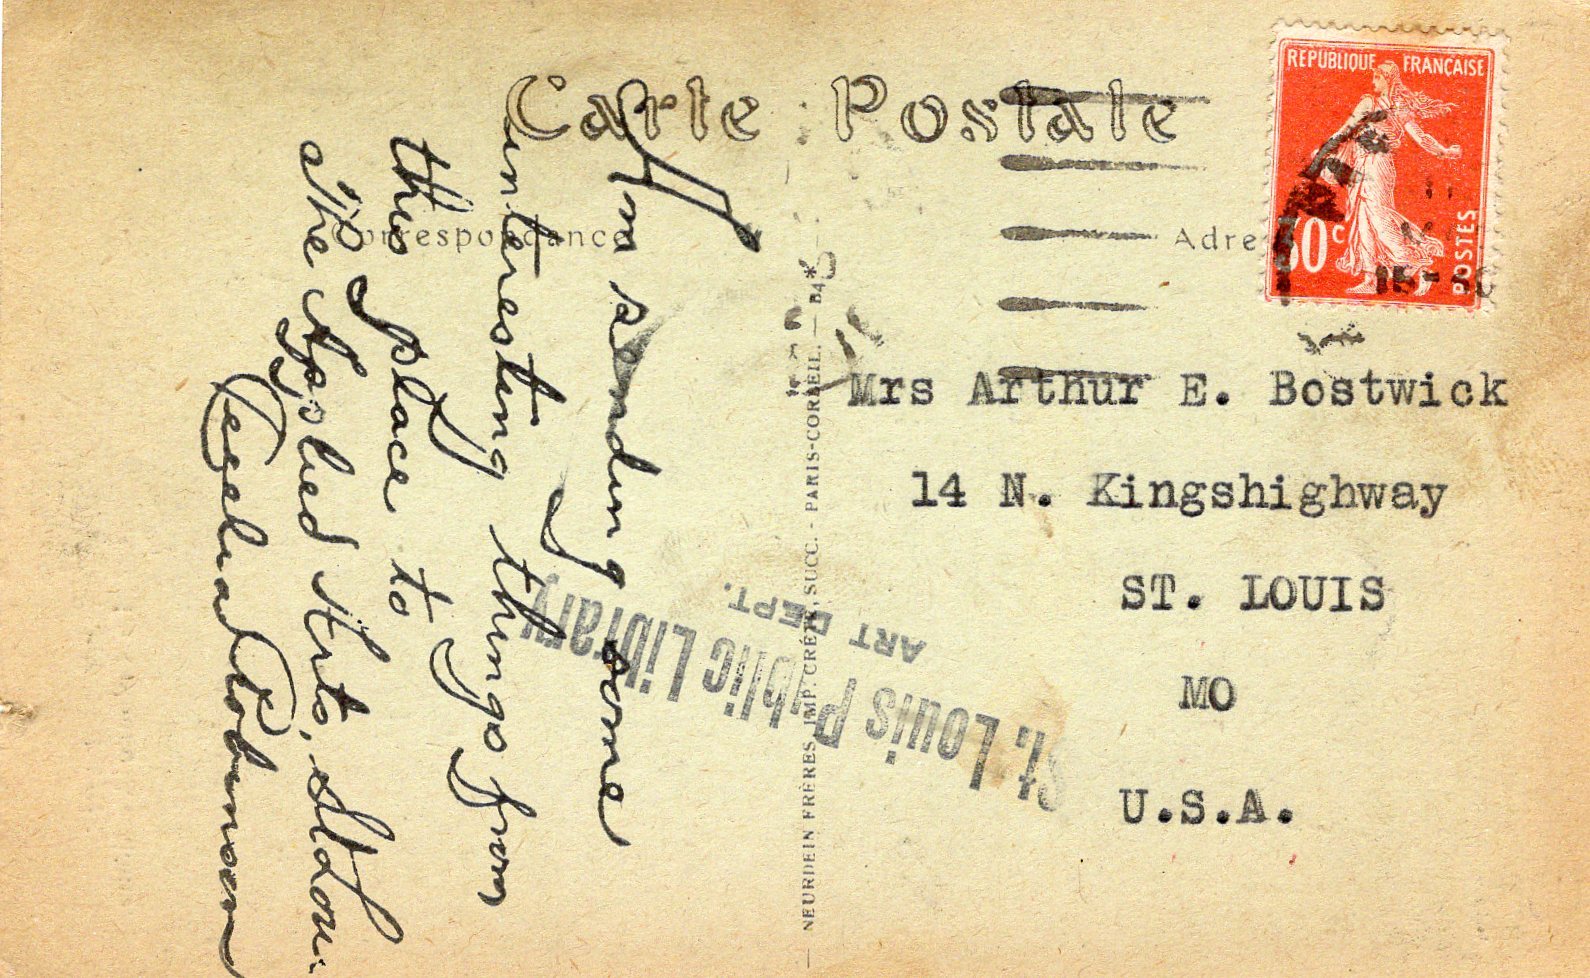 Carte Postale
Correspondance
Adre
REPUBLIQUE FRANÇAISE
30c
POSTES
15-
I'm sending some
interesting things from
this place to
The Applied Arts, St. Lou.
Robinson
Mrs Arthur E. Bostwick
14 N. Kingshighway
ST. LOUIS
MO
U.S.A.
St. Louis Public Library
ART DEPT.
NEURDEIN FRÈRES, IMP. CRÉTÉ, SUCC. - PARIS-CORBEIL. — B4*